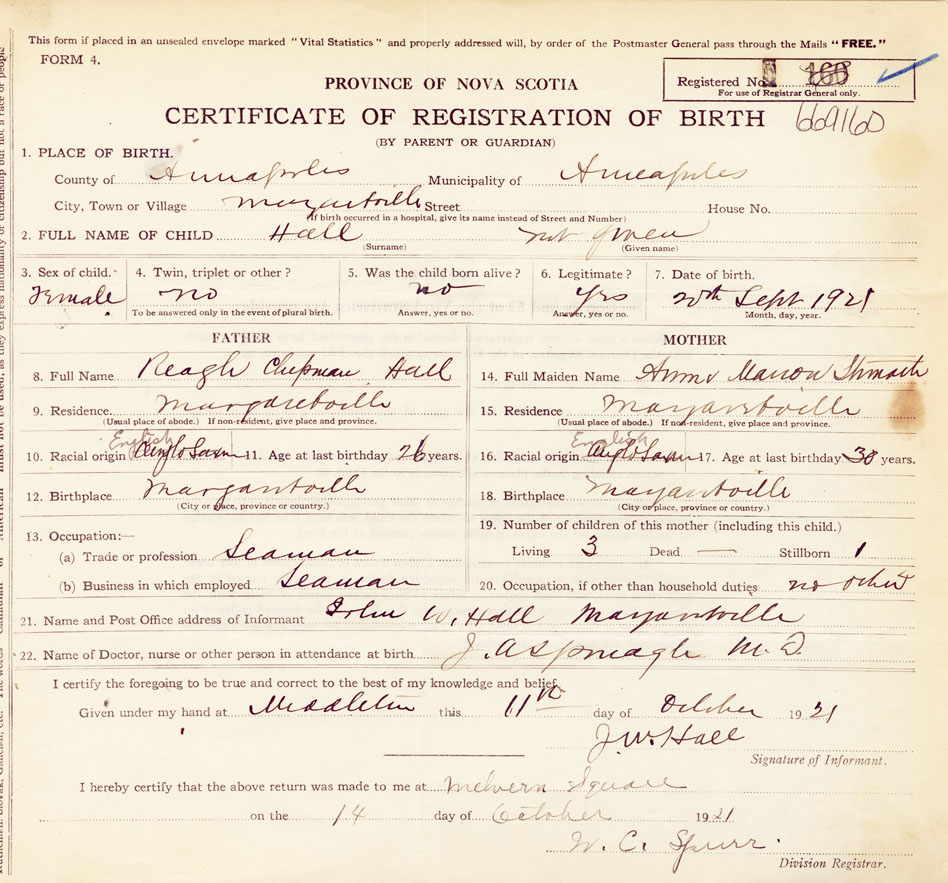 This form if placed in an unsealed envelope marked "Vital Statistics" and properly addressed will, by order of the Postmaster General pass through the Mails "FREE."
FORM 4.
PROVINCE OF NOVA SCOTIA
Registered No. 160
For use of Registrar General only.
CERTIFICATE OF REGISTRATION OF BIRTH 669160
(BY PARENT OR GUARDIAN)
1. PLACE OF BIRTH.
County of Annapolis Municipality of Annapolis
City, Town or Village Margaretville Street House No.
(If birth occurred in a hospital, give its name instead of Street and Number)
2. FULL NAME OF CHILD Hall not given
(Surname) (Given name)
3. Sex of child. 4. Twin, triplet or other? 5. Was the child born alive? 6. Legitimate? 7. Date of birth.
Female no no yes 20th Sept 1921
To be answered only in the event of plural birth. Answer, yes or no. Answer, yes or no. Month, day, year.
FATHER MOTHER
8. Full Name Reagh Chipman Hall 14. Full Maiden Name Marion
9. Residence Margaretville 15. Residence Margaretville
(Usual place of abode.) If non-resident, give place and province. (Usual place of abode.) If non-resident, give place and province.
English English
10. Racial origin Anglo Saxon 11. Age at last birthday 26 years. 16. Racial origin Anglo Saxon 17. Age at last birthday 30 years.
12. Birthplace Margaretville 18. Birthplace Margaretville
(City or place, province or country.) (City or place, province or country.)
13. Occupation:— 19. Number of children of this mother (including this child.)
(a) Trade or profession Seaman Living 3 Dead — Stillborn 1
(b) Business in which employed Seaman 20. Occupation, if other than household duties no other
21. Name and Post Office address of Informant John W. Hall Margaretville
22. Name of Doctor, nurse or other person in attendance at birth J. A. Sponagle M.D.
I certify the foregoing to be true and correct to the best of my knowledge and belief.
Given under my hand at Middleton this 11th day of October 1921
J. W. Hall
Signature of Informant.
I hereby certify that the above return was made to me at Melvern Square
on the 14 day of October 1921
W. C. Spurr.
Division Registrar.